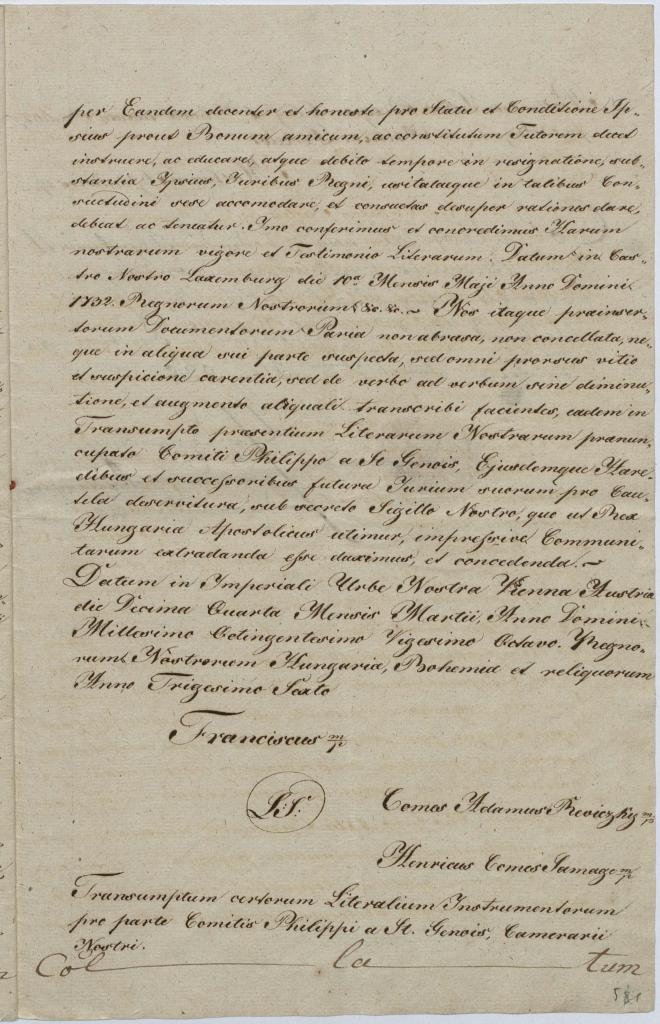 per Eandem decenter et honeste pro Statu et Conditione Ip-
sius prout Bonum amicum, ac constitutum Tutorem decet
instruere, ac educare, atque debito tempore in resignatione, sub-
stantia Ipsius, Juribus Regni, usitataque in talibus Con-
suetudini sese accomodare, et consuetas desuper rationes dare,
debeat ac teneatur. Imo conferimus et concredimus Harum
nostrarum vigore et Testimonio Literarum. Datum in Cas-
tro Nostro Laxemburg die 10a Mensis Maji Anno Domini
1732. Regnorum Nostrorum &c. &c. ~ Nos itaque prainser-
torum Documentorum Paria non abrasa, non concellata, ne-
que in aliqua sui parte suspecta, sed omni prorsus vitio
et suspicione carentia, sed de verbo ad verbum sine diminu-
tione, et augmento aliquali transcribi facientes, eadem in
Transumpto præsentium Literarum Nostrarum prænun-
cupato Comiti Philippo a St Genois, Ejusdemque Hære-
dibus et successoribus futura Jurium suorum pro Cau-
tela deservitura, sub secreto Sigillo Nostro, quo ut Rex
Hungaria Apostolicus utimur, impressive Communi-
tarum extradanda esse duximus, et concedenda. ~
Datum in Imperiali Urbe Nostra Vienna Austria
die Decima Quarta Mensis Martii, Anno Domini
Millesimo Octingentesimo Vigesimo Octavo. Regno-
rum Nostrorum Hungaria, Bohemia et reliquorum
Anno Trigesimo Sexto
Franciscus mp
L.S. Comes Adamus Reviczky mp
Henricus Comes mp
Transumptum certorum Literalium Instrumentorum
pro parte Comitis Philippi a St. Genois, Camerarii
Nostri.
Col la tum